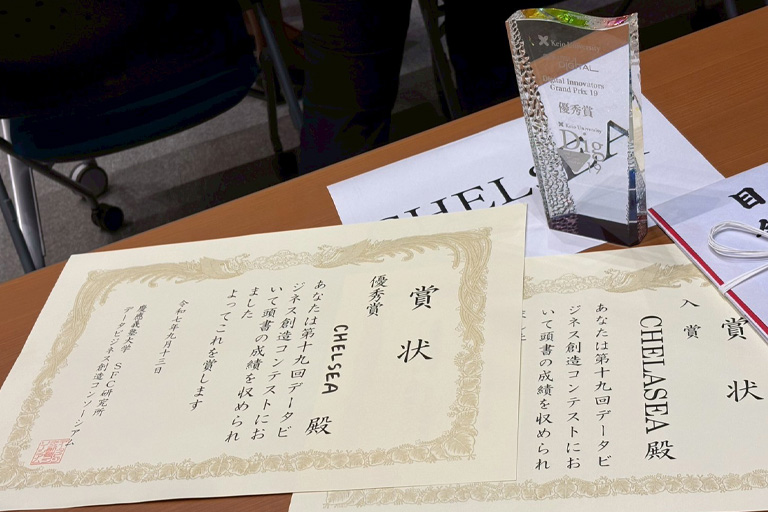 賞状
優秀賞
CHELSEA 殿
あなたは第十九回データビ
ジネス創造コンテストにお
いて頭書の成績を収められ
ました
よってこれを賞します
令和七年九月十三日
慶應義塾大学 SFC研究所
データビジネス創造コンソーシアム
賞状
入賞
CHELASEA 殿
あなたは第十九回データビ
ジネス創造コンテストにお
いて頭書の成績を収められ
Keio University
Digital Innovators
Grand Prix 19
優秀賞
Keio University
Dig
19
CHELSEA
目